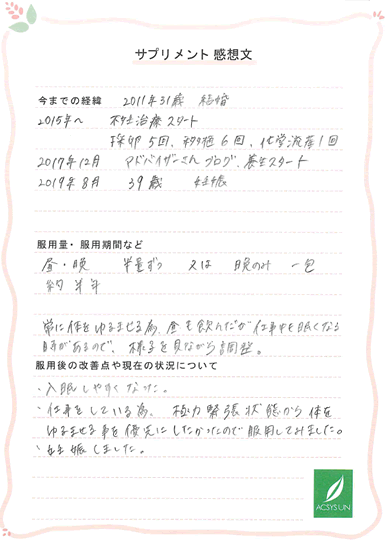 サプリメント 感想文
今までの経緯 2011年31歳 結婚
2015年〜 不妊治療スタート
採卵5回、移植6回、化学流産1回
2017年12月 アドバイザーさんブログ、養生スタート
2019年8月 39歳 妊娠
服用量・服用期間など
昼・晩 半量ずつ 又は 晩のみ 一包
約半年
常に体をゆるませる為、昼も飲んだが仕事中眠くなる
時があるので、様子を見ながら調整。
服用後の改善点や現在の状況について
・入眠しやすくなった。
・仕事をしている為、極力緊張状態から体を
ゆるませる事を優先にしたかったので服用してみました。
・妊娠しました。
ACSYSUN